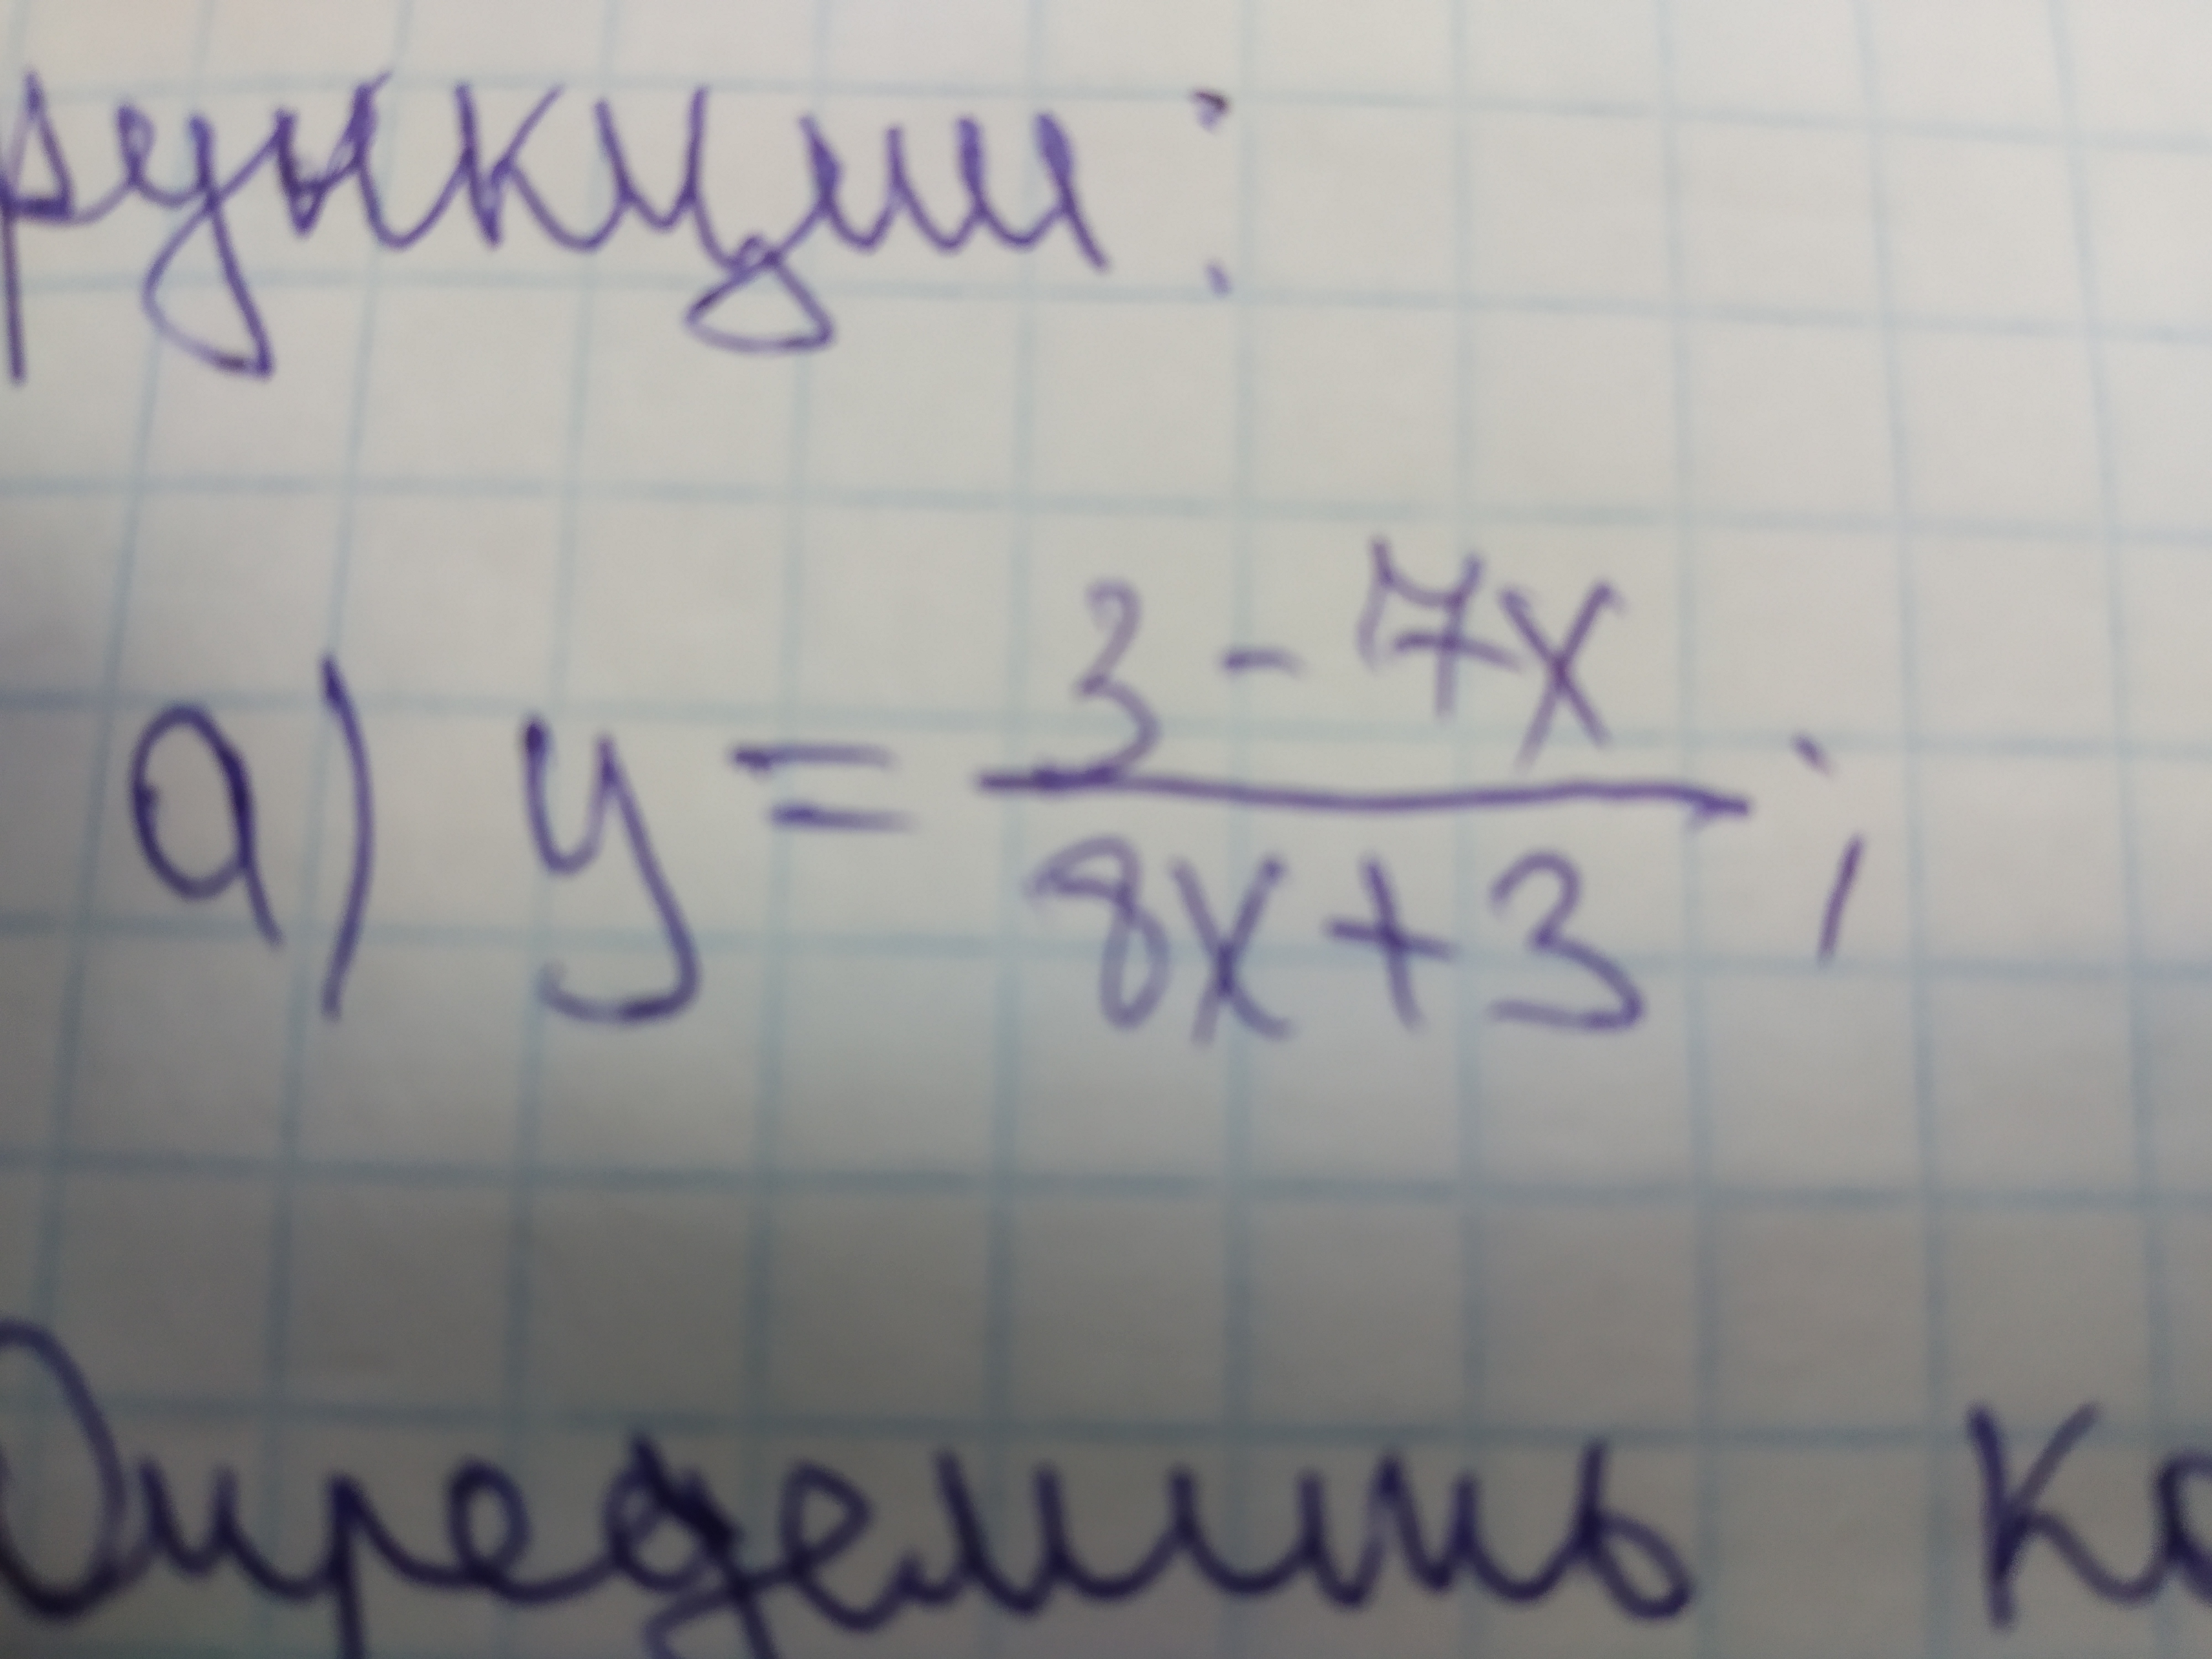 функции:
а) y = (3 - 7x)/(8x + 3);
Определить